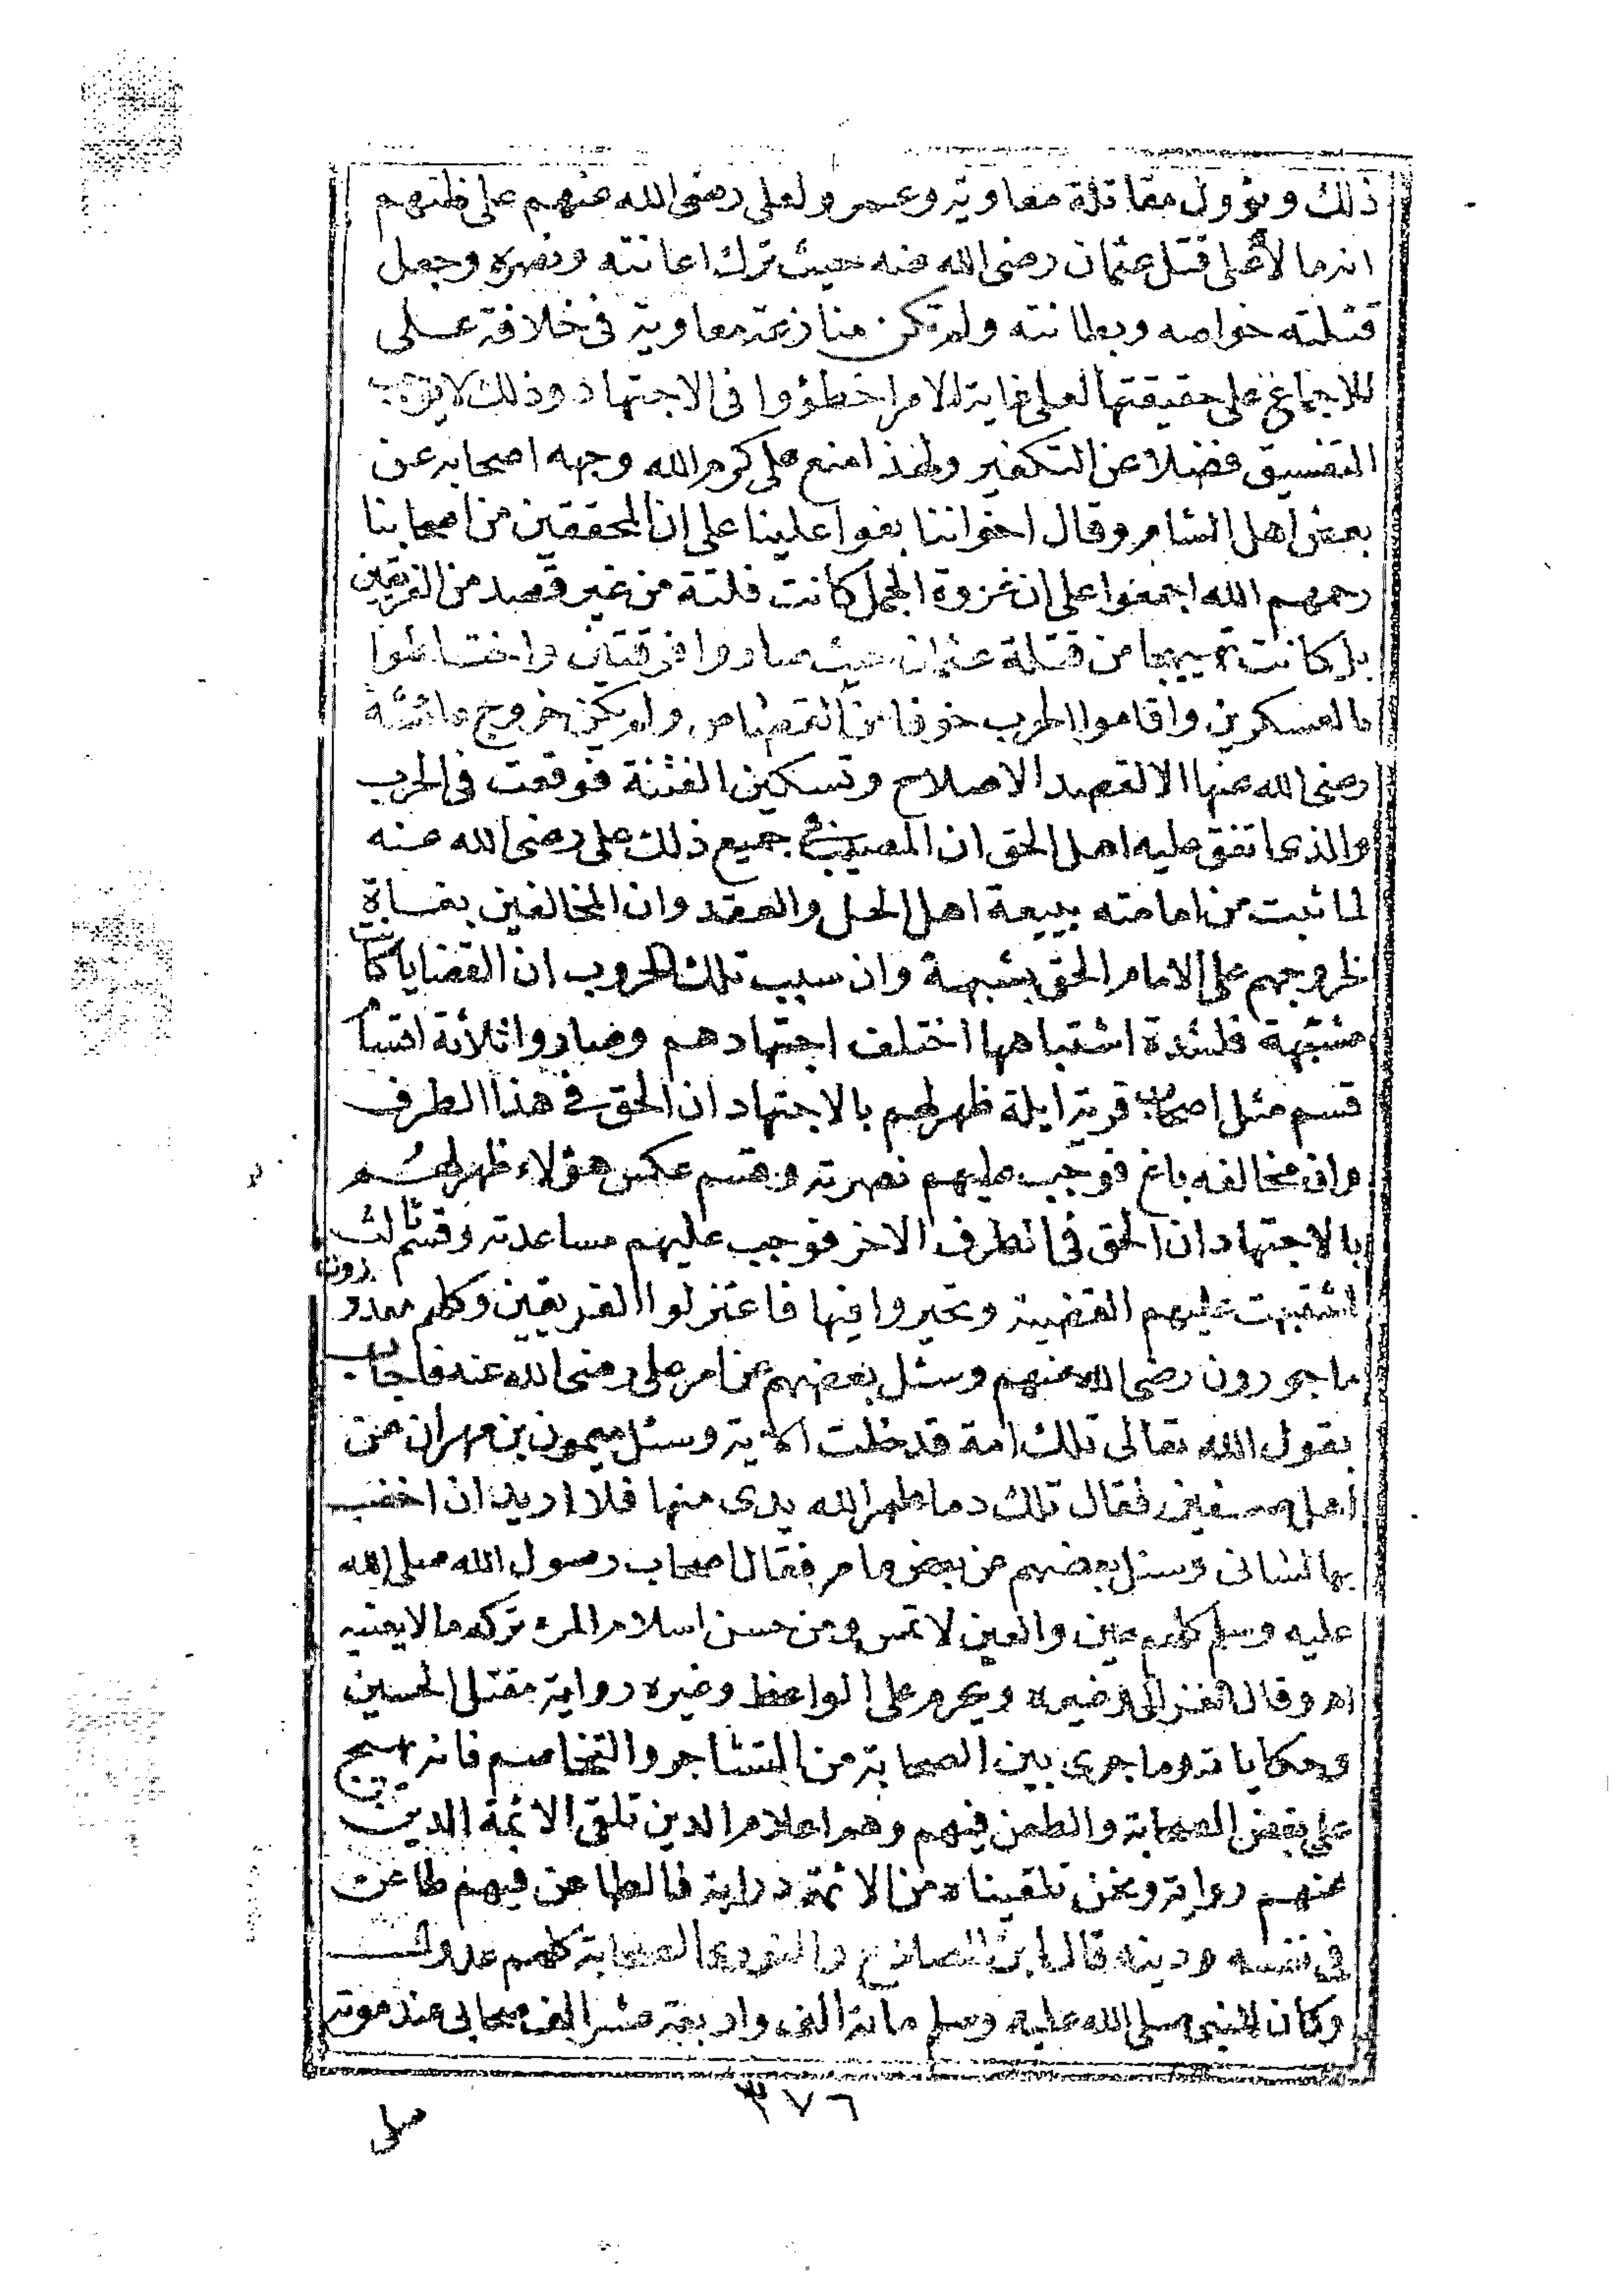 ذلك ويؤول مقاتلة معاوية وعمرو لعلي رضى الله عنهم على ظنهم
انه مالأ على قتل عثمان رضى الله عنه حيث ترك اعانته ونصره وجعل
قتلته خواصه وبطانته ولم تكن منازعة معاوية في خلافة عـلى
للاجماع على حقيقتها لعلى غاية الامر اخطؤوا في الاجتهاد وذلك لا يوجب
التفسيق فضلا عن التكفير ولهذا منع على كرم الله وجهه اصحابه عن
بعض اهل الشام وقال اخواننا بغوا علينا على ان المحققين من اصحابنا
رحمهم الله اجمعوا على ان غزوة الجمل كانت فلتة من غير قصد من الفريقين
بل كانت تهييجا من قتلة عثمان حيث صاروا فرقتين واختلطوا
بالعسكرين واقاموا الحرب خوفا من القصاص ولم يكن خروج عائشة
رضى الله عنها الا لقصد الاصلاح وتسكين الفتنة فوقعت في الحرب
والذى اتفق عليه اهل الحق ان المصيب في جميع ذلك على رضى الله عنه
لما ثبت من امامته ببيعة اهل الحل والعقد وان المخالفين بغـاة
لخروجهم على الامام الحق بشبهة وان سبب تلك الحروب ان القضايا كانت
مشتبهة فلشدة اشتباهها اختلف اجتهادهم وصاروا ثلاثة اقسام
قسم مثل اصحاب قرية ايلة ظهر لهم بالاجتهاد ان الحق في هذا الطرف
وان مخالفه باغ فوجب عليهم نصرته وقسم عكس هؤلاء ظهر لهم
بالاجتهاد ان الحق في الطرف الاخر فوجب عليهم مساعدته وقسم ثالث
اشتبهت عليهم القضية وتحيروا فيها فاعتزلوا الفريقين وكلهم معذورون
ماجورون رضى الله عنهم وسئل بعضهم عن امر على رضى الله عنه فاجاب
بقول الله تعالى تلك امة قد خلت الاية وسئل ميمون بن مهران عن
اهل صفين فقال تلك دما طهر الله يدى منها فلا اريد ان اخضب
بها لسانى وسئل بعضهم عن بعض ما مر فقال اصحاب رسول الله صلى الله
عليه وسلم كلهم عين والعين لا تمس ومن حسن اسلام المرء تركه ما لا يعنيه
اه وقال الغزالى وغيره ويحرم على الواعظ وغيره رواية مقتل الحسين
وحكاياته وما جرى بين الصحابة من التشاجر والتخاصم فانه يهيج
على بغض الصحابة والطعن فيهم وهم اعلام الدين تلقى الائمة الدين
عنهم رواية ونحن تلقيناه من الائمة دراية فالطاعن فيهم طاعن
في نفسه ودينه قال ابن الصلاح والنووى الصحابة كلهم عدول
وكان للنبى صلى الله عليه وسلم مائة الف واربعة عشر الف صحابى عند موته
٣٧٦
صلى